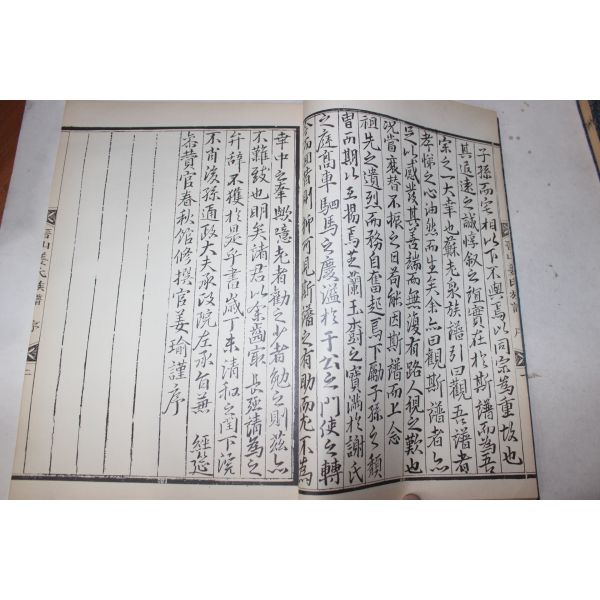 子孫而宅相以下不與焉以同宗爲重故也
其追遠之誠惇叙之誼實在於斯譜而爲吾
宗之一大幸也蘇老泉族譜引曰觀吾譜者
孝悌之心油然而生矣余亦曰觀斯譜者亦
足以感發其善端而無復有路人視之歎也
況當衰替不振之日苟能因斯譜而上念
祖先之遺烈而務自奮起焉下勵子孫之
冑而期以立揚焉芝蘭玉樹之寶滿於謝氏
之庭高車駟馬之慶溢於于公之門使之轉
爲
幸中之幸歟噫老者勸之少者勉之則茲亦
不難致也明矣諸君以余齒最長強請爲之
弁辭不獲於是乎書歲丁未清和之閏下浣
不肖後孫通政大夫承政院左承旨兼 經筵
參贊官春秋館修撰官姜瑜謹序
晉山姜氏族譜 序 二
晉山姜氏族譜 序